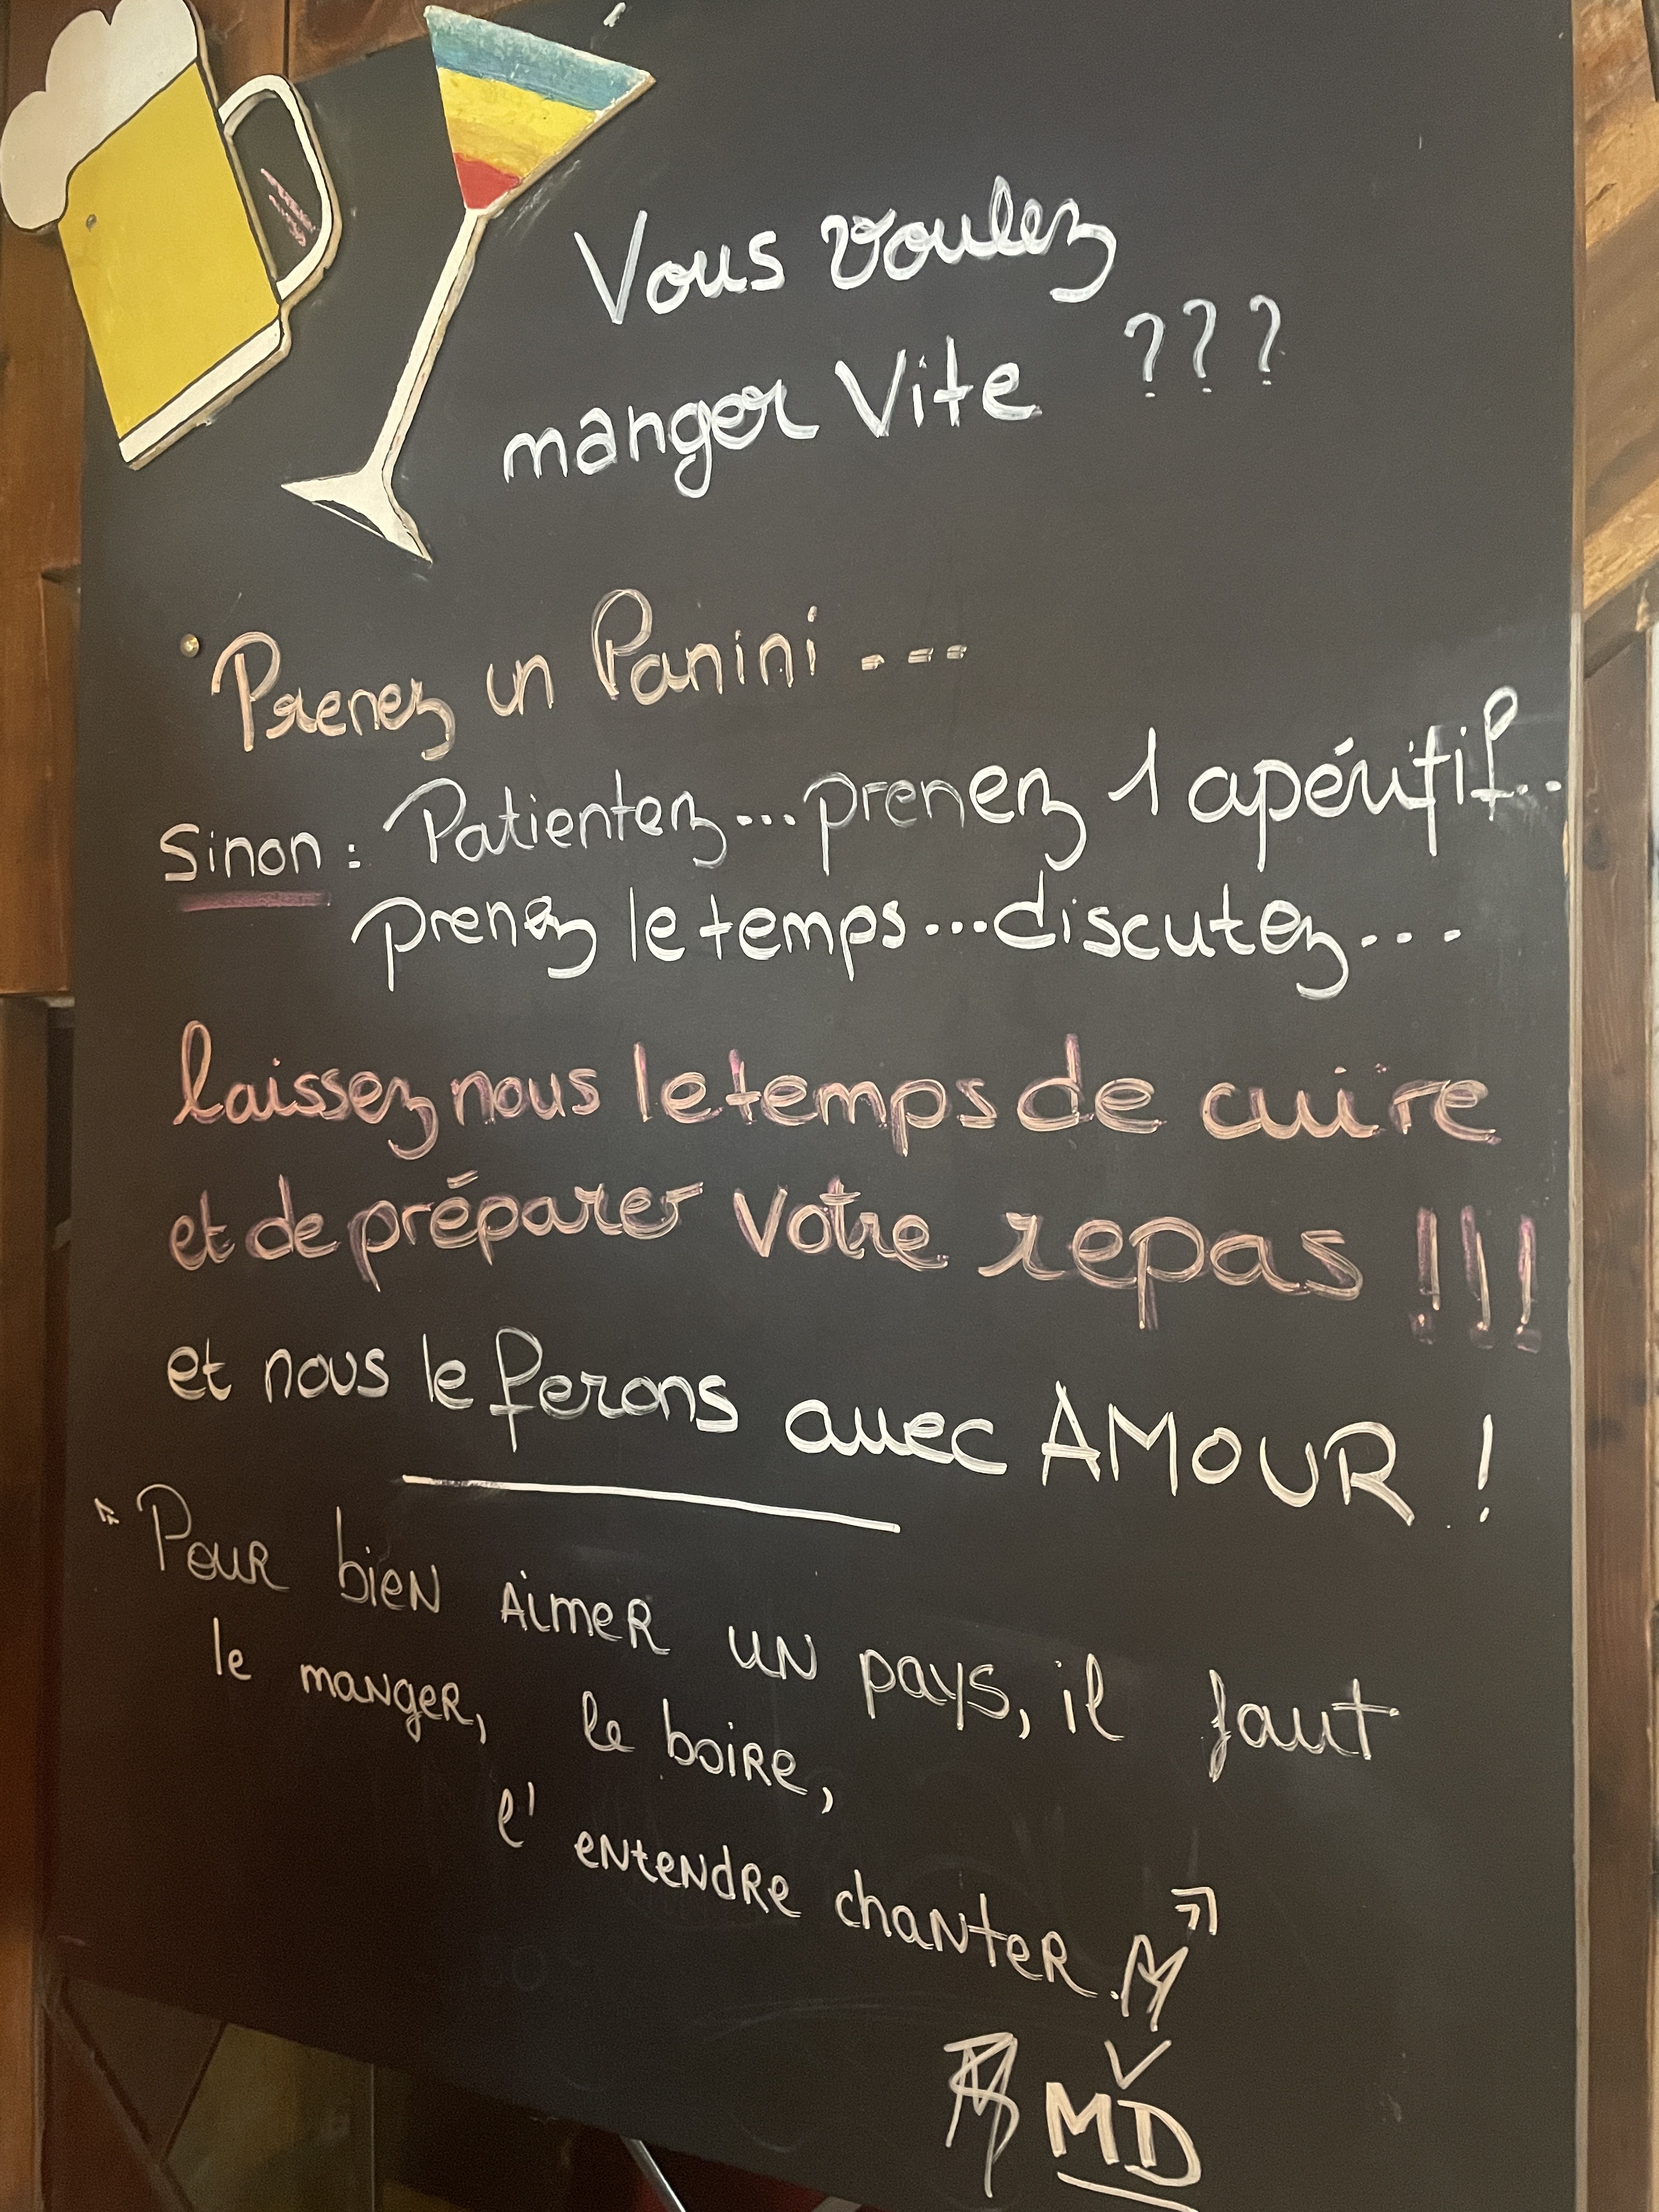 Vous voulez
manger Vite ???
Prenez un Panini ...
Sinon : Patientez... prenez 1 apéritif..
prenez le temps... discutez...
laissez nous le temps de cuire
et de préparer votre repas !!!
et nous le ferons avec AMOUR !
"Pour bien aimer un pays, il faut
le manger, le boire,
l'entendre chanter."
MD